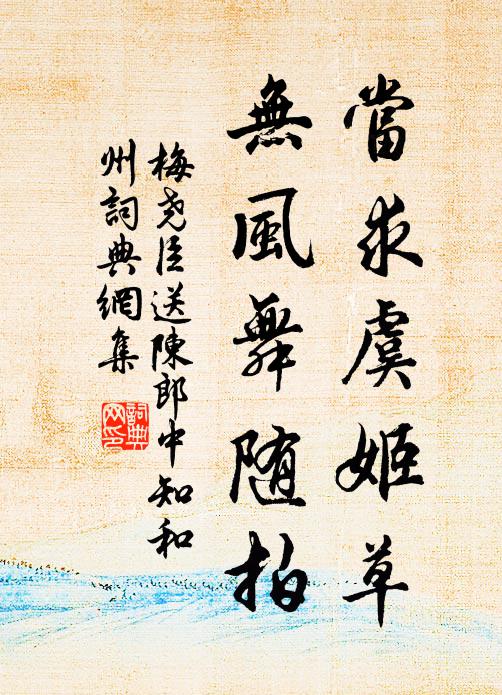 當求虞姬草
無風舞随拍
梅尧臣送陳郎中知和
州詞典網集
詞典
网印